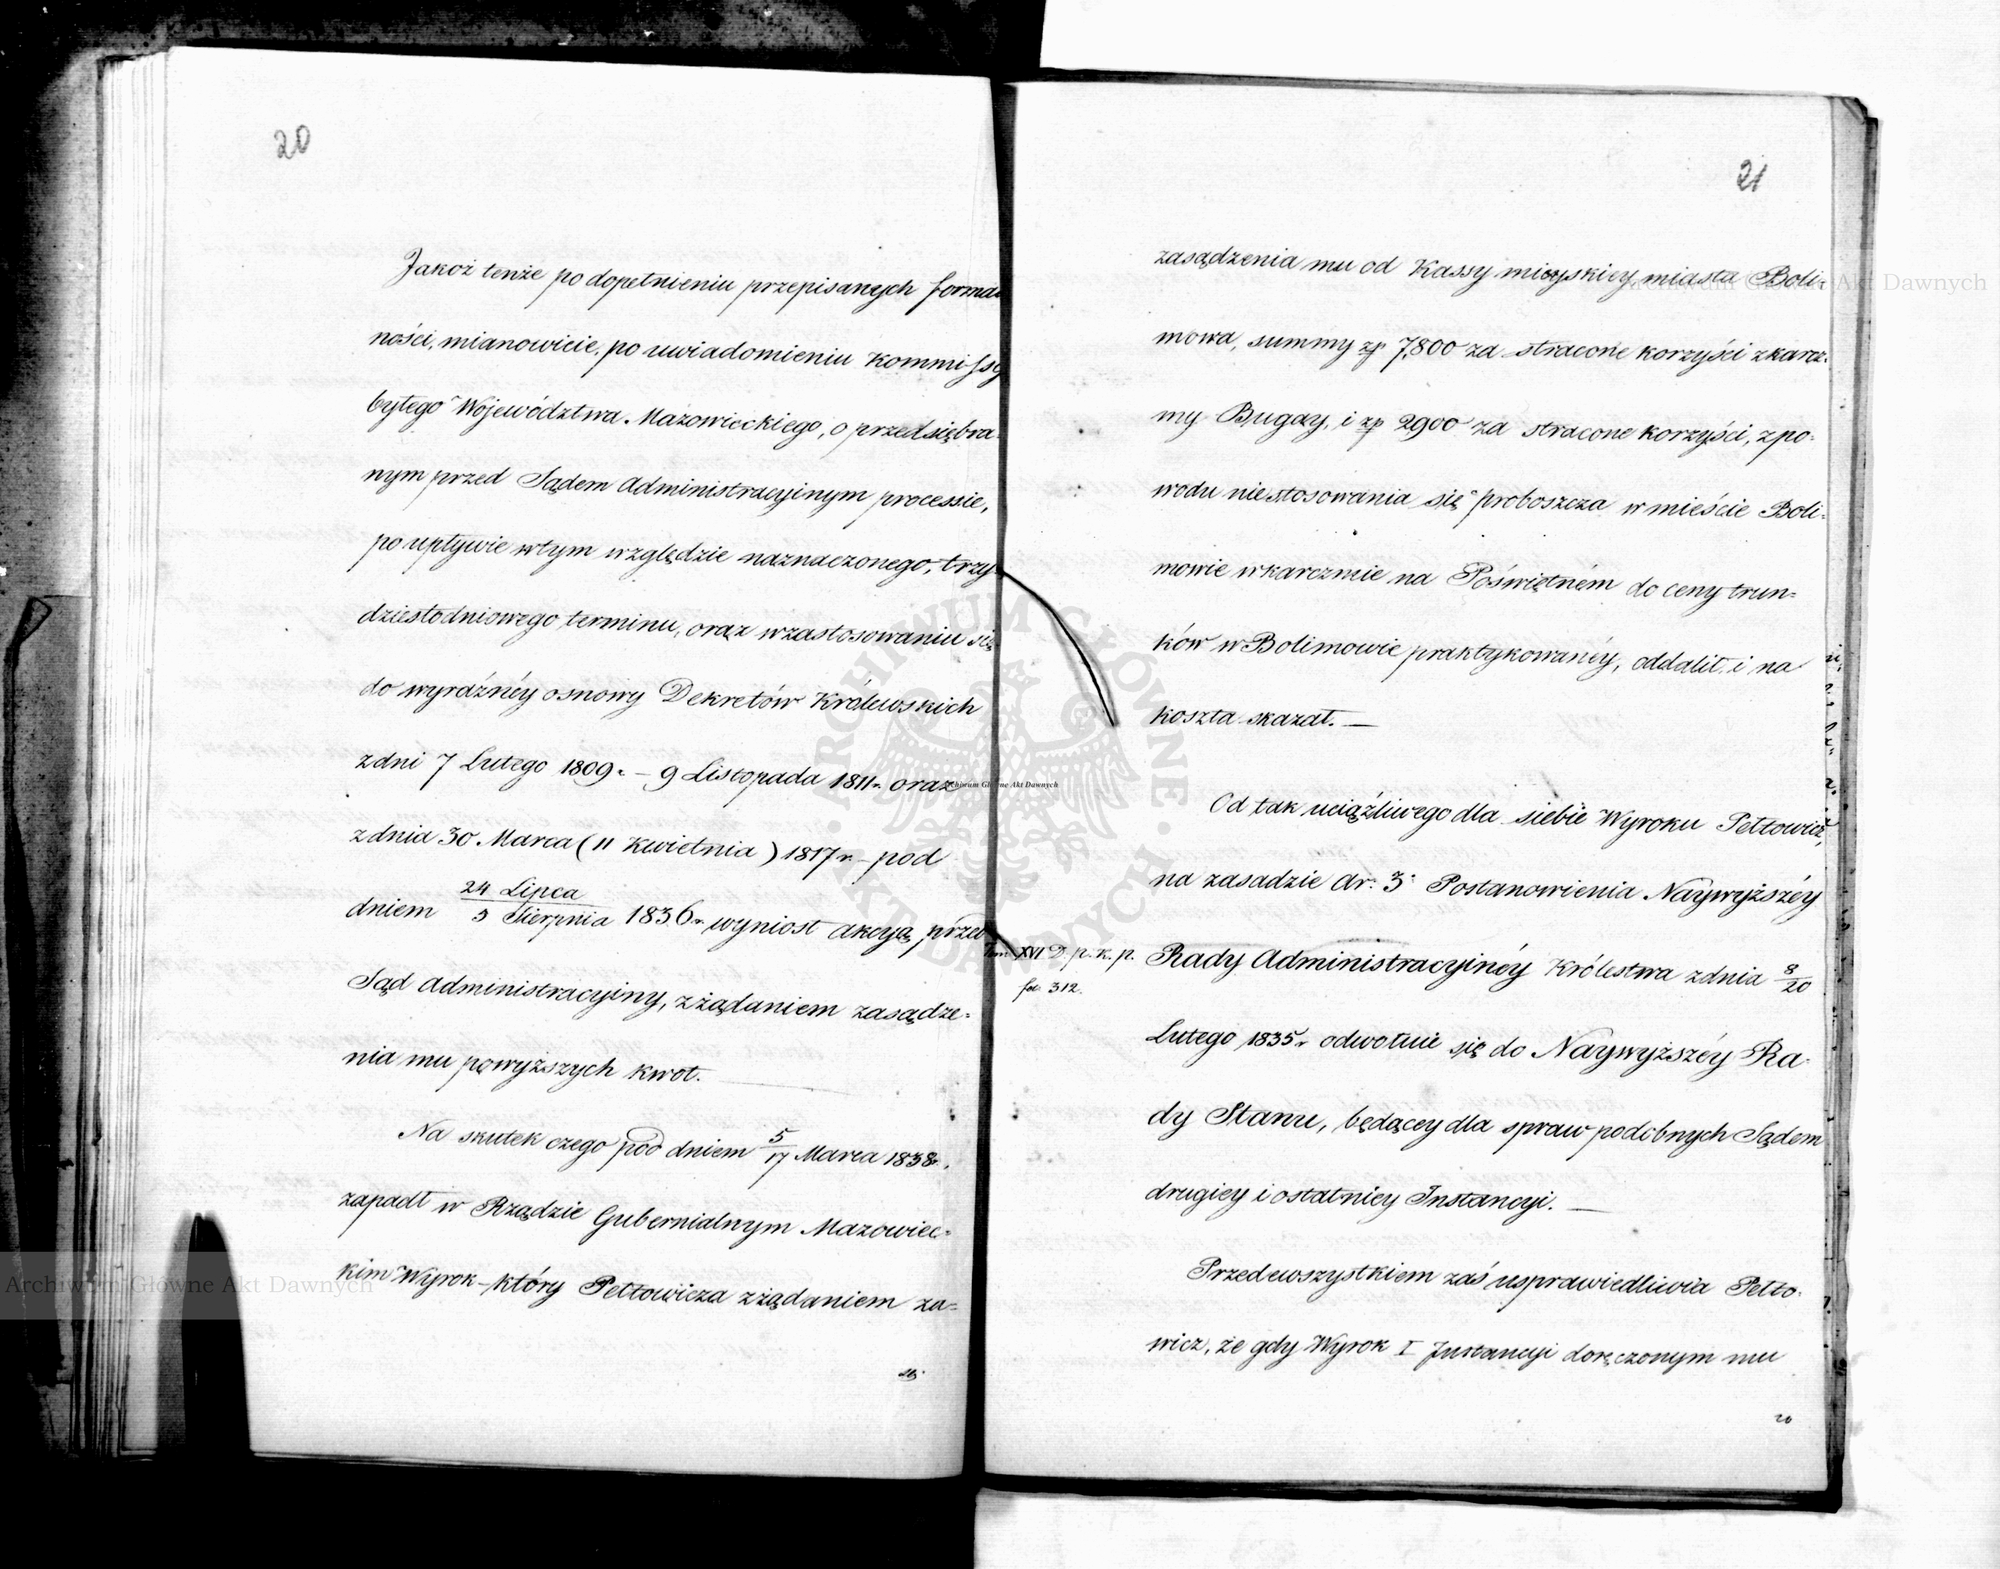 20
Jakoż tenże po dopełnieniu przepisanych formal
ności, mianowicie, po uwiadomieniu Kommissy
byłego Województwa Mazowieckiego, o przedsiębra
nym przed Sądem Administracyinym processie,
po upływie w tym względzie naznaczonego, trzy
dziestodniowego terminu, oraz w zastosowaniu się
do wyraźnéy osnowy Dekretów Królewskich
z dni 7 Lutego 1809 r. – 9 Listopada 1811 r. oraz
z dnia 30 Marca (11 Kwietnia) 1817 r. – pod
dniem 24 Lipca / 5 Sierpnia 1836 r. wyniosł akcyą, przed
Sąd Administracyiny, z żądaniem zasądze=
nia mu powyższych kwot. —
Na skutek czego pod dniem 5/17 Marca 1838 r.
zapadł w Rządzie Gubernialnym Mazowiec=
kim Wyrok – który Pełtowicza z żądaniem za=
21
zasądzenia mu od Kassy mieyskiey, miasta Boli=
mowa, summy zp 7,800 za stracone korzyści z karcz=
my Bugay, i zp 2900 za stracone korzyści, z po=
wodu niestosowania się proboszcza w mieście Boli=
mowie w karczmie na Poświętném do ceny trun=
ków w Bolimowie praktykowanéy, oddalił, i na
koszta skazał. —
Od tak uciążliwego dla siebie Wyroku Pełtowicz,
na zasadzie Ar: 3º Postanowienia Naywyższéy
Tom XVI D. p. K. p.
fol. 312.
Rady Administracyinéy Królestwa z dnia 8/20
Lutego 1835 r. odwołuie się do Naywyższéy Ra=
dy Stanu, będącey dla spraw podobnych Sądem
drugiey i ostatniey Instancyi. —
Przedewszystkiem zaś usprawiedliwia Pełto=
wicz, że gdy Wyrok I Instancyi doręczonym mu
20
Archiwum Główne Akt Dawnych
Archiwum Główne Akt Dawnych
Archiwum Główne Akt Dawnych
ARCHIWUM GŁÓWNE AKT DAWNYCH